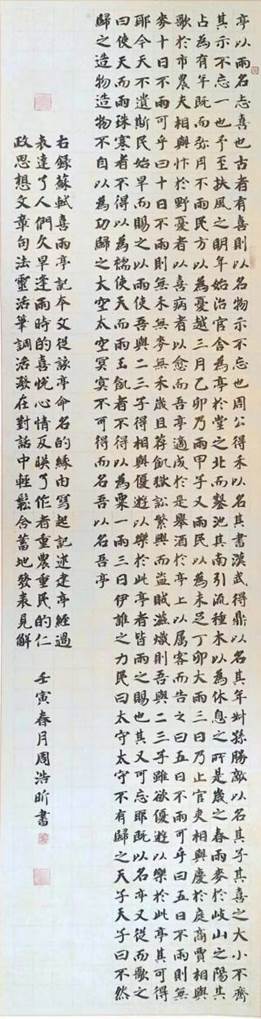 亭以雨名志喜也古者有喜則以名物示不忘也周公得禾以名其書漢武得鼎以名其年叔孫勝敵以名其子其喜之大小不齊
其示不忘一也予至扶風之明年始治官舍為亭於堂之北而鑿池其南引流種木以為休息之所是歲之春雨麥於岐山之陽其
占為有年既而彌月不雨民方以為憂越三月乙卯乃雨甲子又雨民以為未足丁卯大雨三日乃止官吏相與慶於庭商賈相與
歌於市農夫相與忭於野憂者以喜病者以愈而吾亭適成於是舉酒於亭上以属客而告之曰五日不雨可乎曰五日不雨則無
麥十日不雨可乎曰十日不雨則無禾無麥無禾歲且荐飢獄訟繁興而盜賊滋熾則吾與二三子雖欲優遊以樂於此亭其可得
耶今天不遺斯民始旱而賜之以雨使吾與二三子得相與優遊以樂於此亭者皆雨之賜也其又可忘耶既以名亭又從而歌之
曰使天而雨珠寒者不得以為襦使天而雨玉飢者不得以為粟一雨三日伊誰之力民曰太守太守不有歸之天子天子曰不然
歸之造物造物不自以為功歸之太空太空冥冥不可得而名吾以名吾亭
右録蘇軾喜雨亭記本文從該亭命名的緣由寫起記述建亭經過
表達了人們久旱逢雨時的喜悦心情反映了作者重農重民的仁
政思想文章句法靈活筆調活潑在對話中輕鬆含蓄地發表見解
壬寅春月周浩昕書